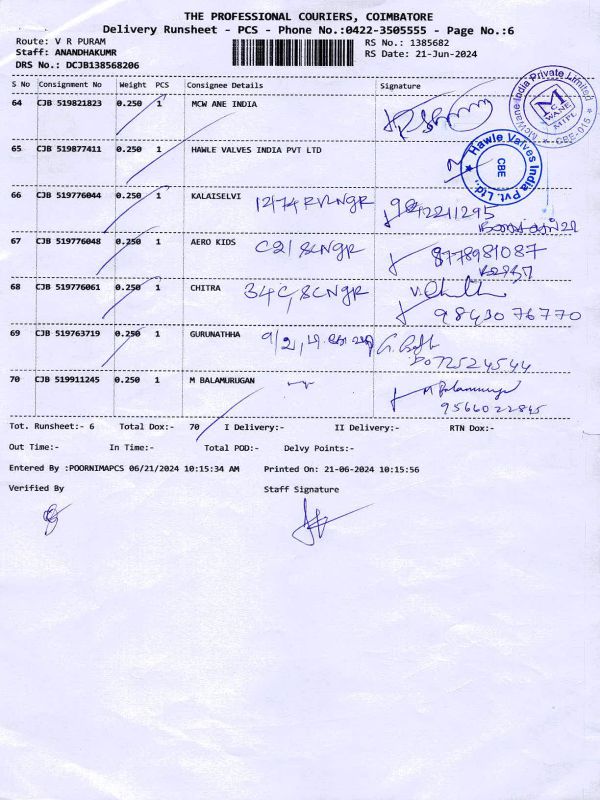 THE PROFESSIONAL COURIERS, COIMBATORE
Delivery Runsheet - PCS - Phone No.:0422-3505555 - Page No.:6
Route: V R PURAM
RS No.: 1385682
Staff: ANANDHAKUMR
RS Date: 21-Jun-2024
DRS No.: DCJB138568206
S No Consignment No Weight PCS Consignee Details Signature
64 CJB 519821823 0.250 1 MCW ANE INDIA
McWane India Private Limited CBE-015
MC WANE MIIPL
65 CJB 519877411 0.250 1 HAWLE VALVES INDIA PVT LTD
Hawle Valves India Pvt. Ltd. CBE
66 CJB 519776044 0.250 1 KALAISELVI 12/74 RVLNGR 9842211295
67 CJB 519776048 0.250 1 AERO KIDS C21 SLNGR 8778981087
68 CJB 519776061 0.250 1 CHITRA 34C, SCNGR V.
9843076770
69 CJB 519763719 0.250 1 GURUNATHHA 9/2,
8072524544
70 CJB 519911245 0.250 1 M BALAMURUGAN M Balamurugan
9566022845
Tot. Runsheet:- 6 Total Dox:- 70 I Delivery:- II Delivery:- RTN Dox:-
Out Time:- In Time:- Total POD:- Delvy Points:-
Entered By :POORNIMAPCS 06/21/2024 10:15:34 AM Printed On: 21-06-2024 10:15:56
Verified By Staff Signature